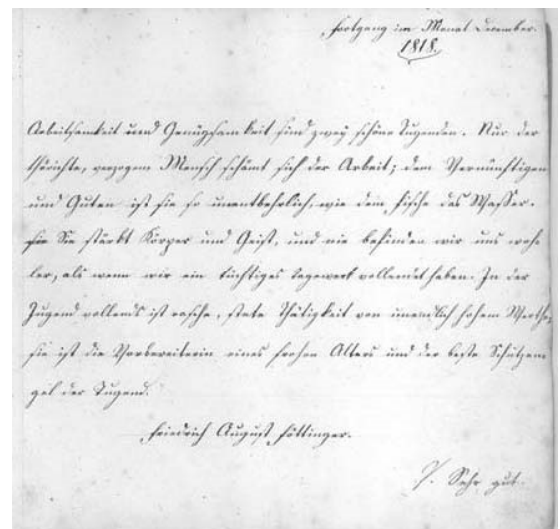 Fortgang im Monat December.
1818.
Arbeitsamkeit und Genügsamkeit sind zwey schöne Tugenden. Nur der
thörichte, verzogene Mensch schämt sich der Arbeit; dem Vernünftigen
und Guten ist sie so unentbehrlich, wie dem Fische das Wasser.
Sie stärkt Körper und Geist, und nie befinden wir uns woh
ler, als wenn wir ein tüchtiges Tagewerk vollendet haben. In der
Jugend vollends ist rasche, stete Thätigkeit von unendlich hohem Werthe,
sie ist die Vorbereiterin eines frohen Alters und der beste Schutzen
gel der Tugend.
Friedrich August
Sehr gut.